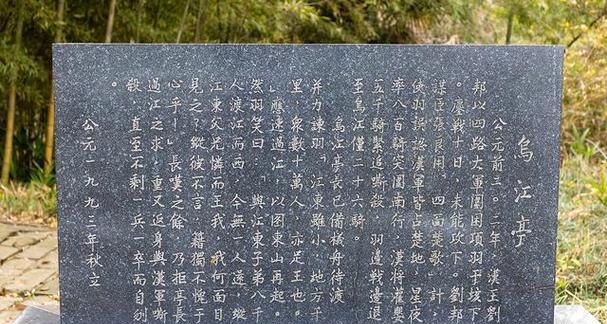 乌江亭
公元前二〇二年，汉王刘
邦以四路大军围困项羽于垓下
。鏖战十日，未能攻下。刘邦
谋臣张良用“四面楚歌”计，
使羽误认汉军皆占楚地，星夜
率八百骑突围南行，汉将灌婴
五千骑紧追嘶杀，羽边战边退
至乌江仅二十六骑。
乌江亭长已备楫舟待渡
并力谏羽：“江东虽小，地方千
里，众数十万人，亦足王也。
”应速过江，以图东山再起。
然羽笑曰：“与江东子弟八千
人渡江而西，今无一人还，纵
江东父兄怜而王我，我何面目
见之？纵彼不言，籍独不愧于
心乎！”长叹之余，乃拒亭长
过江之求，重又返身与汉军嘶
杀，直至不剩一兵一卒而自刎
。
公元一九九三年秋立